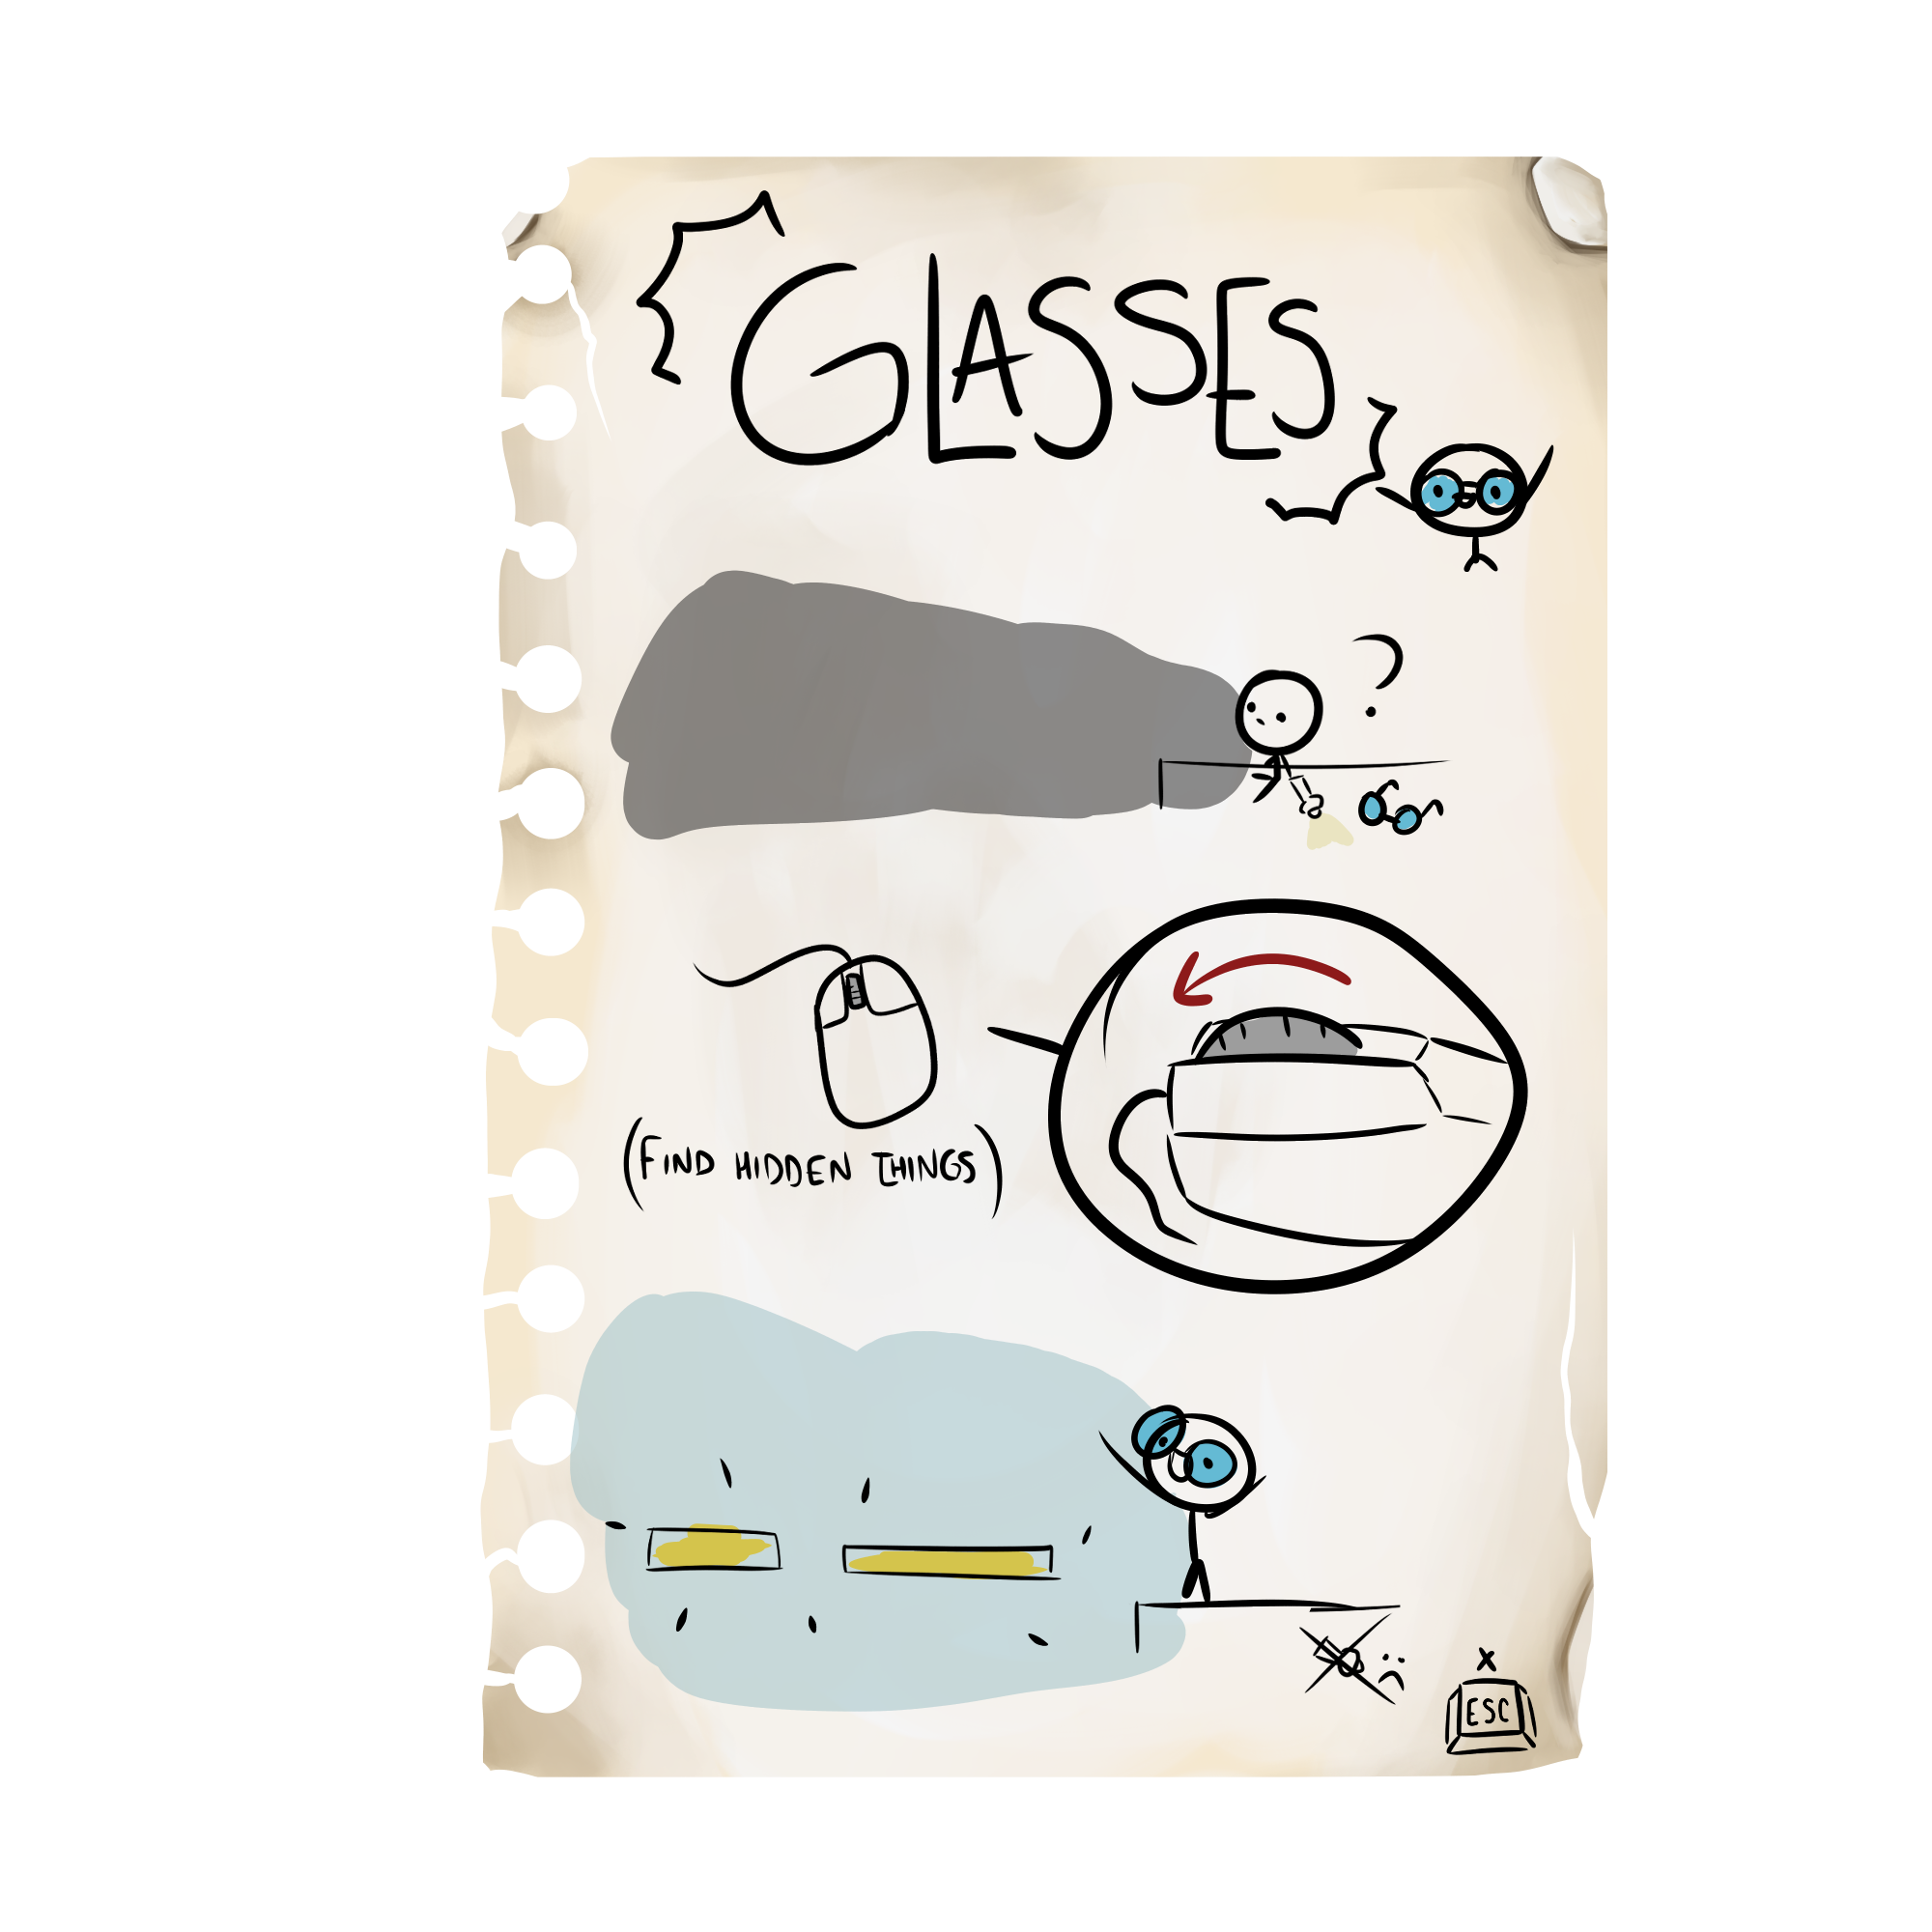 GLASSES
?
(FIND HIDDEN THINGS)
X
ESC